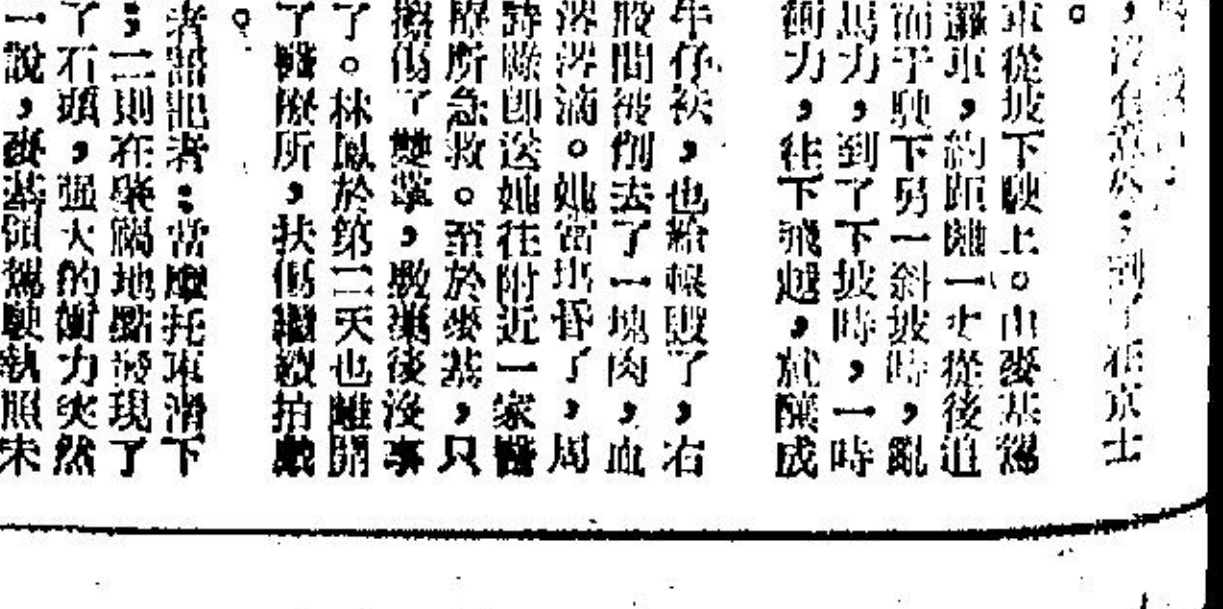 在京士
。
車從坡下駛上。由麥基駕
邏車，約距離一丈從後追
駛下另一斜坡時，亂
馬力，到了下坡時，一時
衝力，往下飛越，就釀成
牛仔袂，也給輾破了，右
股間被削去了一塊肉，血
涔涔滴。她當場昏了，周
詩蔭即送她往附近一家醫
療所急救。至於麥基，只
擦傷了雙掌，敷藥後沒事
了。林鳳於第二天也離開
了醫療所，扶傷繼續拍戲
。
者：當摩托車滑下
；二則在肇禍地點發現了
了石頭，强大的衝力突然
一說，麥基領駕駛執照未